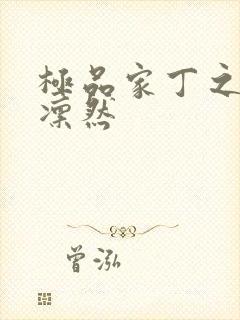 極品家丁之
凜然
曾泓